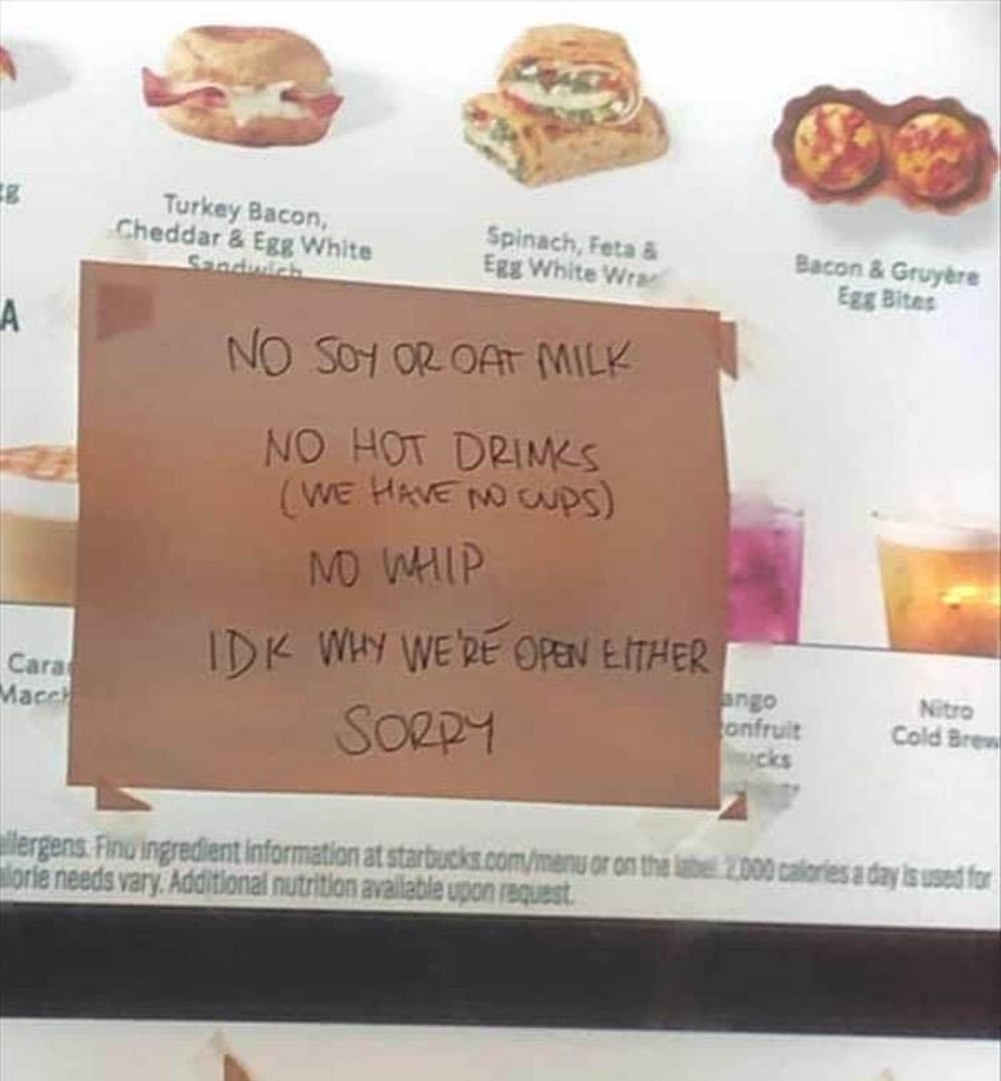 Turkey Bacon,
Cheddar & Egg White
Sandwich
Spinach, Feta &
Egg White
Bacon & Gruyère
Egg Bites
A
NO SOY OR OAT MILK
NO HOT DRINKS
(WE HAVE NO CUPS)
NO WHIP
IDK WHY WE'RE OPEN EITHER
SORRY
Nitro
Cold Brew
allergens. Find ingredient information at starbucks.com/menu or on the label. 2,000 calories a day is used for
needs vary. Additional nutrition available upon request.